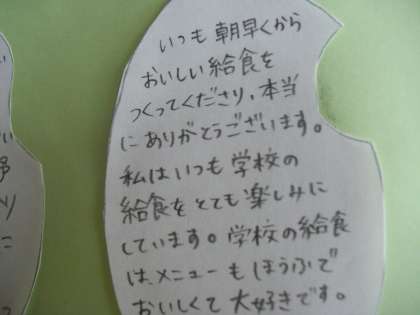 いつも朝早くから
おいしい給食を
つくってくださり、本当
にありがとうございます。
私はいつも学校の
給食をとても楽しみに
しています。学校の給食
は、メニューもほうふで
おいしくて大好きです。